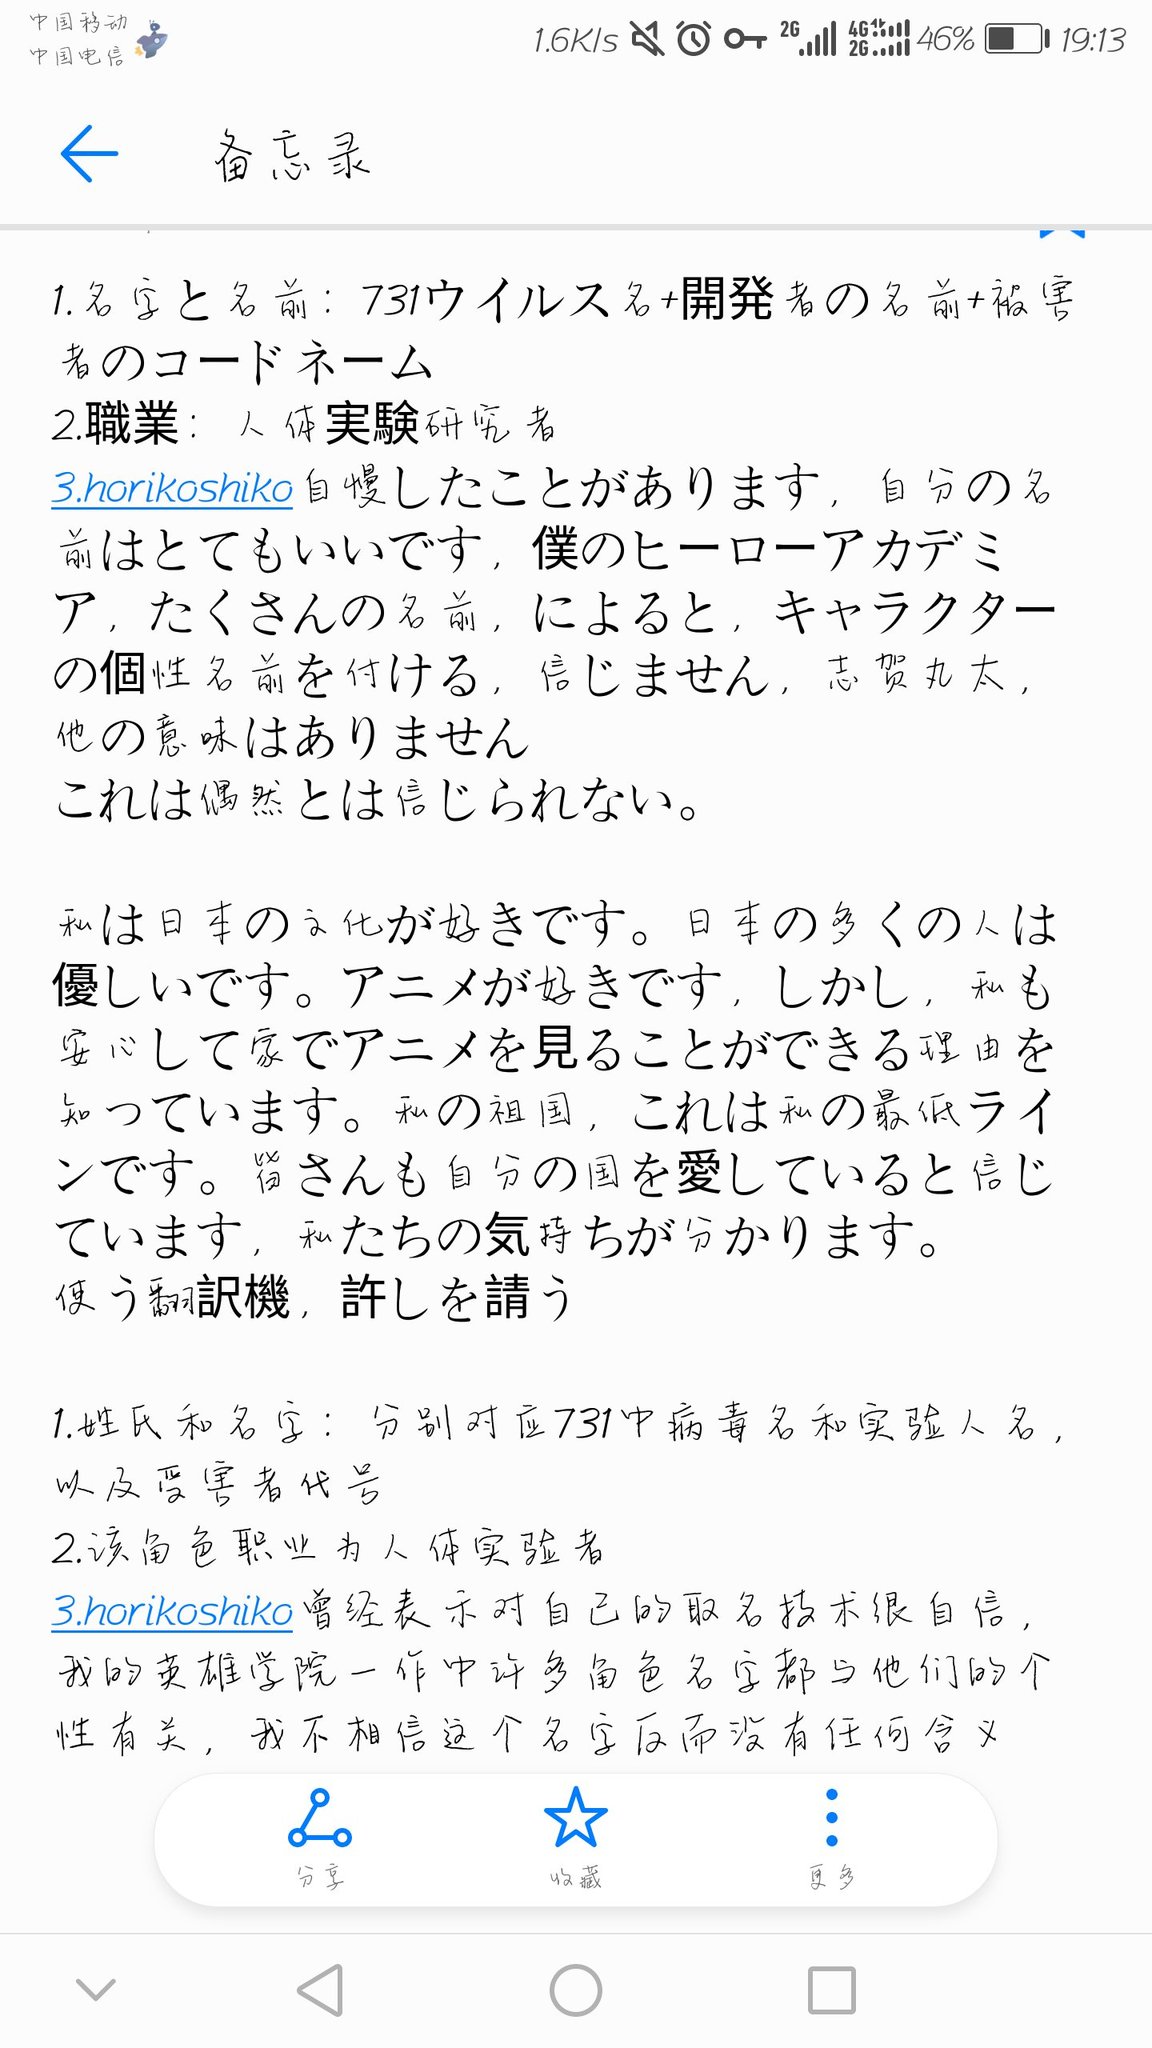 中国移动
中国电信
1.6K/s 2G 4G 2G 46% 19:13
备忘录
1.名字と名前：731ウイルス名+開発者の名前+被害
者のコードネーム
2.職業：人体実験研究者
3.horikoshiko自慢したことがあります，自分の名
前はとてもいいです，僕のヒーローアカデミ
ア，たくさんの名前，によると，キャラクター
の個性名前を付ける，信じません，志贺丸太，
他の意味はありません
これは偶然とは信じられない。
私は日本の文化が好きです。日本の多くの人は
優しいです。アニメが好きです，しかし，私も
安心して家でアニメを見ることができる理由を
知っています。私の祖国，これは私の最低ライ
ンです。皆さんも自分の国を愛していると信じ
ています，私たちの気持ちが分かります。
使う翻訳機，許しを請う
1.姓氏和名字：分别对应731中病毒名和实验人名，
以及受害者代号
2.该角色职业为人体实验者
3.horikoshiko曾经表示对自己的取名技术很自信，
我的英雄学院一作中许多角色名字都与他们的个
性有关，我不相信这个名字反而没有任何含义
分享 收藏 更多